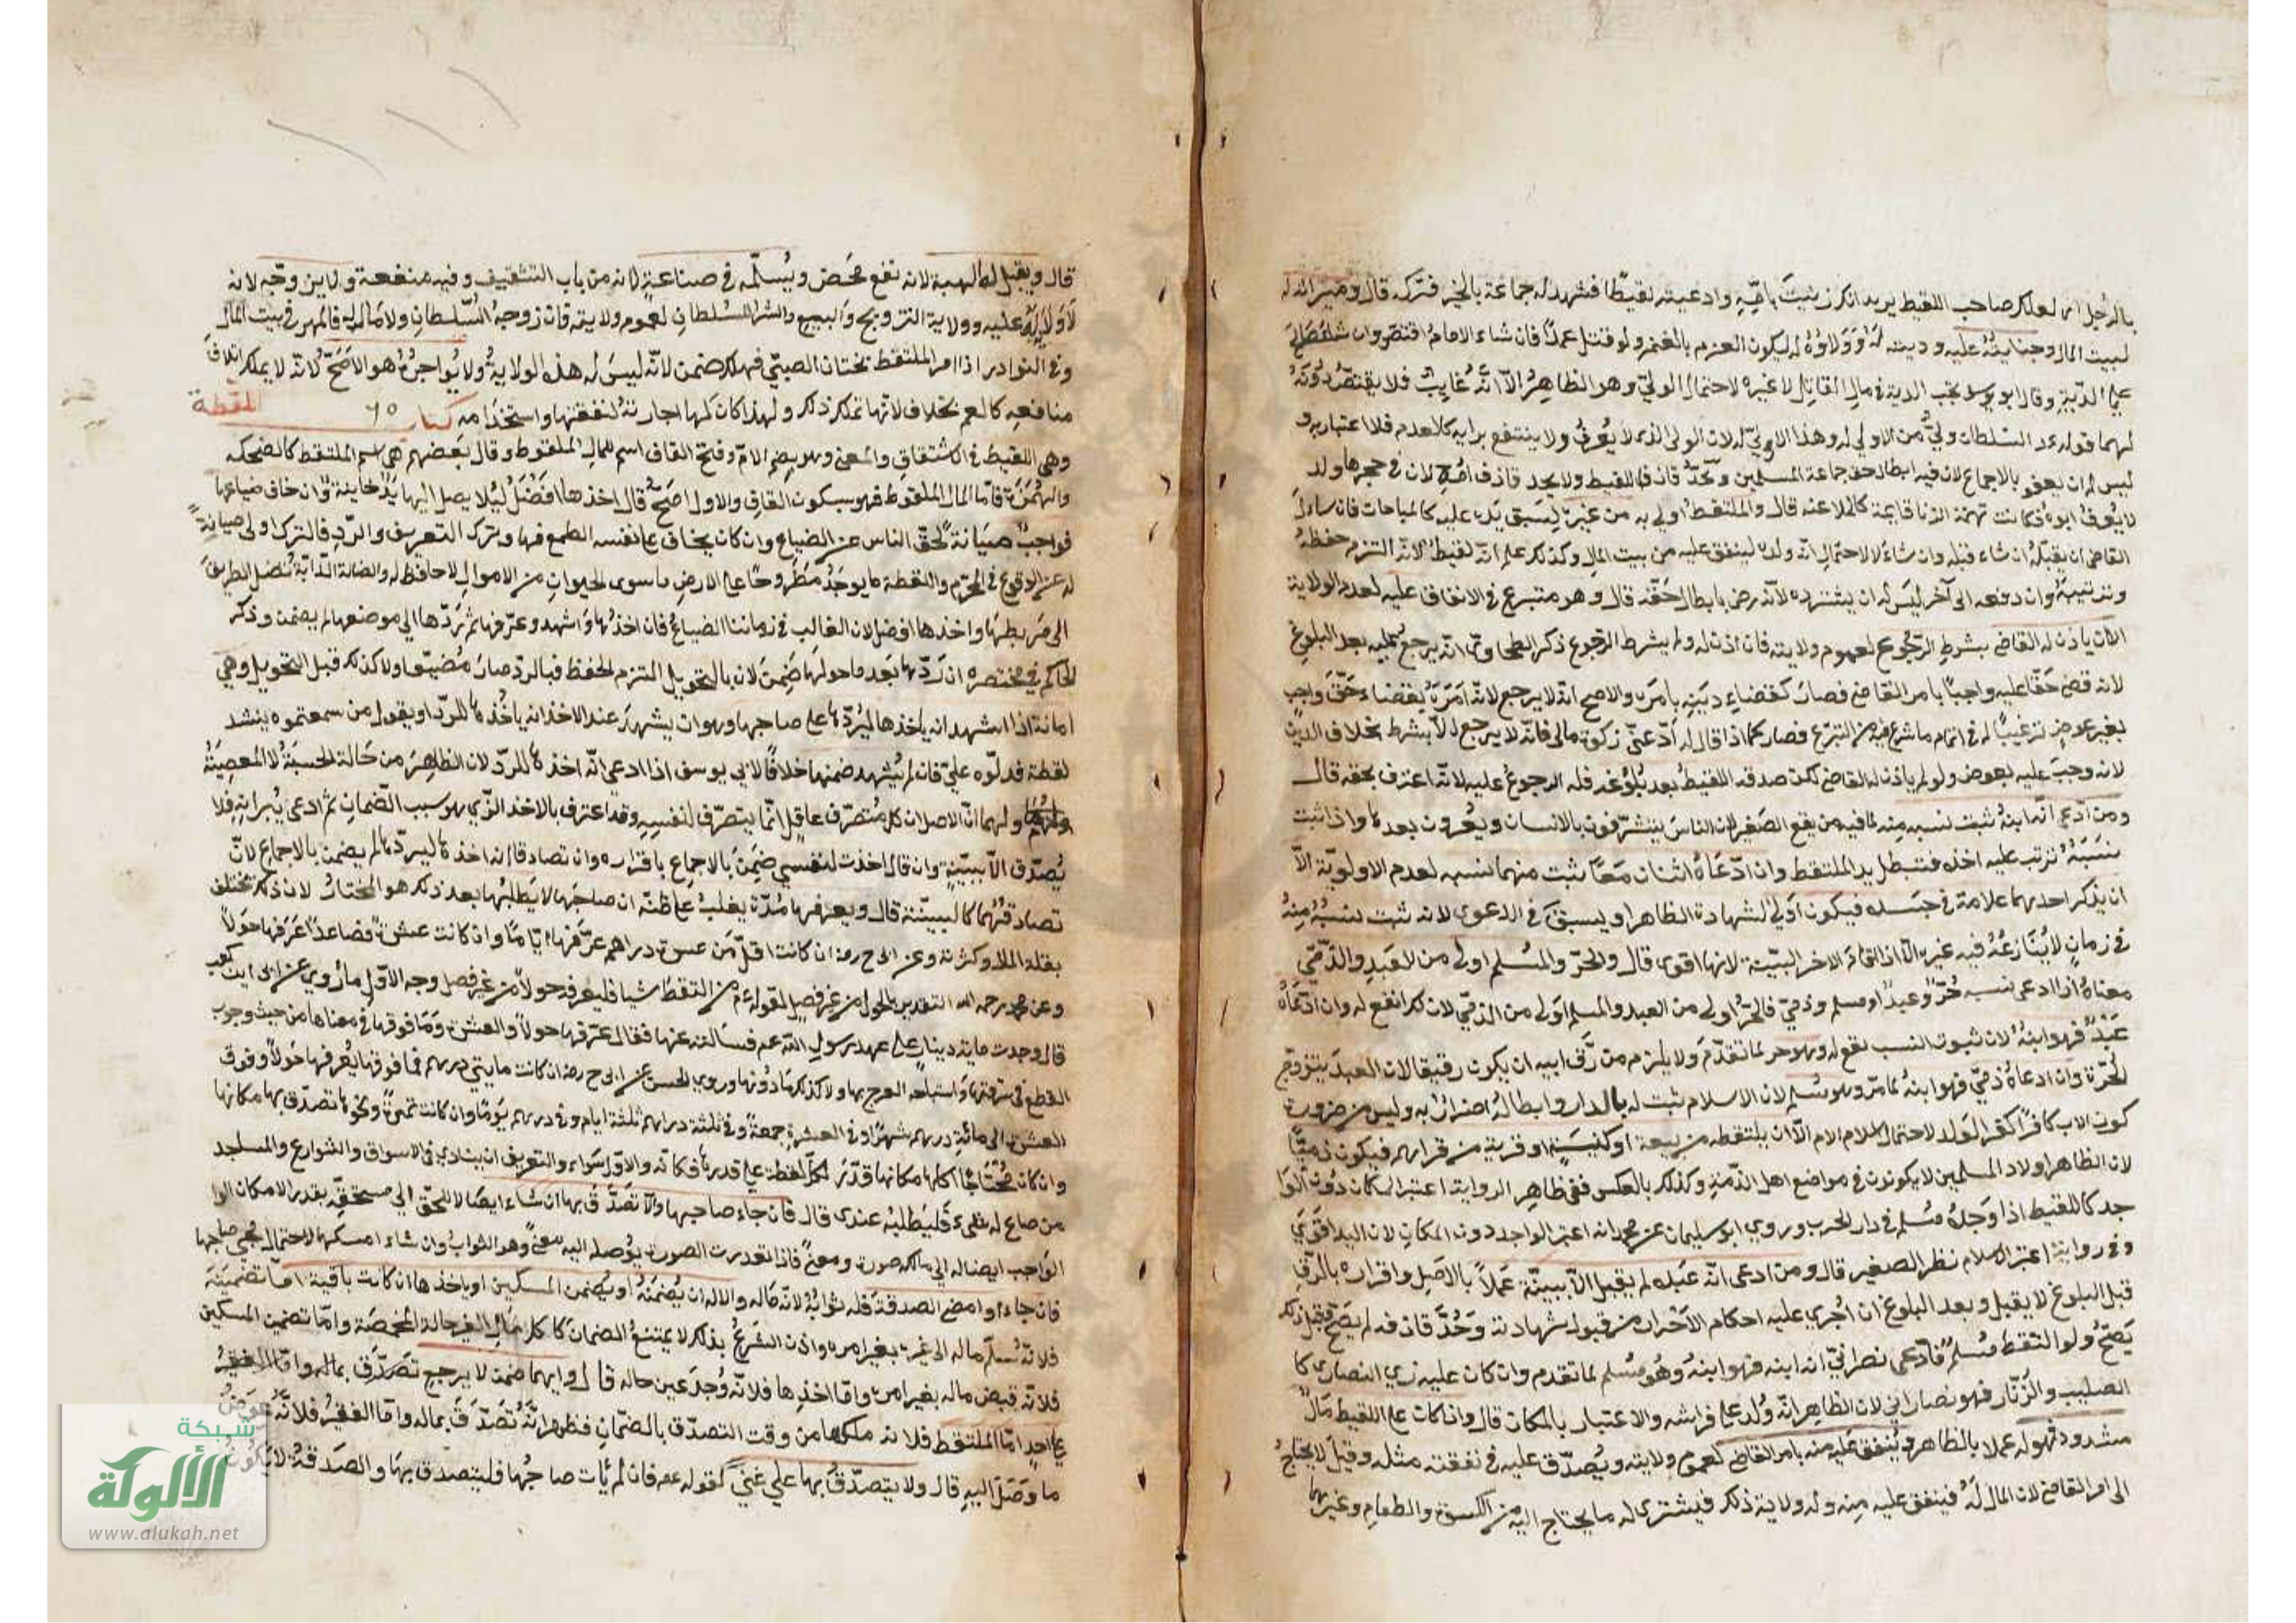 بالرجل اي لعلك صاحب اللقيط يريد انك زنيت بامه وادعيته لقيطا فشهد له جماعة بالخير فتركه قال وميراثه له
لبيت المال وجنايته عليه وديته له وولاؤه له ليكون الغرم بالغنم ولو قتل عمدا فان شاء الامام اقتص وان شاء
الدية وقال ابو يوسف تجب الدية في مال القاتل لا غيره لاحتمال الولي وهو الظاهر الا انه غايب فلا يقتص دونه
لهما قوله عم السلطان ولي من لا ولي له وهذا لا ولي له لان الولي الذي لا يعرف ولا ينتفع برايه كالعدم فلا اعتبار به و
ليس له ان يعفو بالاجماع لان فيه ابطال حق جماعة المسلمين ويحد قاذف اللقيط ولا يحد قاذف امه لان في حجرها ولد
لا يعرف ابوه فكانت تهمة الزنا قايمة كالملاعنة قال والملتقط اولى به من غيره لسبق يده عليه كالمباحات فان سال
القاضي ان يقبله ان شاء قبله وان شاء لا لاحتمال انه ولده لينفق عليه من بيت المال وكذلك علم انه لقيط لانه التزم حفظه
وتربيته وان دفعه الى آخر ليس له ان يسترده لانه رضي بابطال حقه قال وهو متبرع في الانفاق عليه لعدم الولاية
الا ان ياذن له القاضي بشرط الرجوع لعموم ولايته فان اذن له ولم يشرط الرجوع ذكر الطحاوي انه يرجع عليه بعد البلوغ
لانه قضى حقا عليه واجبا بامر القاضي فصار كقضاء دينه بامره والاصح انه لا يرجع لانه امره بقضاء حق واجب
بغير عوض ترغيبا له في اتمام ما شرع فيه من التبرع فصار كما اذا قال له اد عني زكوة مالي فانه لا يرجع الا بشرط بخلاف الدين
لانه وجب عليه بعوض ولو لم ياذن له القاضي لكن صدقه اللقيط بعد بلوغه فله الرجوع عليه لانه اعترف بحقه قال
ومن ادعى انه ابنه ثبت نسبه منه لما فيه من نفع الصغير لان الناس يتشرفون بالانساب ويعيرون بعدمها واذا ثبت
نسبه ترتب عليه اخذه فتبطل يد الملتقط وان ادعاه اثنان معا ثبت منهما نسبه لعدم الاولوية الا
ان يذكر احدهما علامة في جسده فيكون اولى لشهادة الظاهر او يسبق في الدعوى لانه ثبت نسبه منه
في زمان لا ينازعه فيه غيره الا اذا اقام الاخر البينة لانها اقوى قال والحر والمسلم اولى من العبد والذمي
معناه اذا ادعى نسبه حر وعبد او مسلم وذمي فالحر اولى من العبد والمسلم اولى من الذمي لان ذلك انفع له وان ادعاه
عبد فهو ابنه لان ثبوت النسب نفع له وهو حر لما تقدم ولا يلزم من رق ابيه ان يكون رقيقا لان العبد يتزوج
الحرة وان ادعاه ذمي فهو ابنه لما مر وهو مسلم لان الاسلام ثبت له بالدار وابطاله اضرار به وليس من ضرورة
كون الاب كافرا كفر الولد لاحتمال اسلام الام الا ان يلتقطه من بيعة او كنيسة او قرية من قراهم فيكون ذميا
لان الظاهر اولاد المسلمين لا يكونون في مواضع اهل الذمة وكذلك بالعكس ففي ظاهر الرواية اعتبر المكان دون الوا
جد كاللقيط اذا وجده مسلم في دار الحرب وروي ابو سليمان عن محمد انه اعتبر الواجد دون المكان لان اليد اقوى
وفي رواية اعتبر الاسلام نظر الصغير قال ومن ادعى انه عبده لم يقبل الا ببينة عملا بالاصل واقراره بالرق
قبل البلوغ لا يقبل وبعد البلوغ ان اجري عليه احكام الاحرار من قبول شهادته وحد قاذفه لم يصح وقبل ذلك
يصح ولو التقطه مسلم فادعى نصراني انه ابنه فهو ابنه وهو مسلم لما تقدم وان كان عليه زي النصارى كا
الصليب والزنار فهو نصراني لان الظاهر انه ولد على فراشه والاعتبار بالمكان قال وان كان على اللقيط مال
مشدود فهو له عملا بالظاهر وينفق عليه منه بامر القاضي لعموم ولايته ويصدق عليه في نفقته مثله وقيل لا يحتاج
الى امر القاضي لان المال له فينفق عليه منه وله ولاية ذلك فيشتري له ما يحتاج اليه من الكسوة والطعام وغيرها
قال ويقبل له الهبة لانه نفع محض ويسلمه في صناعة لانه من باب التثقيف وفيه منفعة ولا يزوجه لانه
لا ولاية عليه وولاية التزويج والبيع والشراء للسلطان لعموم ولايته فان زوجه السلطان ولا مال له فالمهر في بيت المال
وفي النوادر اذا امر الملتقط بختان الصبي فهلك ضمن لانه ليس له هذه الولاية ولا يؤاجره هو الاصح لانه لا يملك اتلاف
منافعه كالعم بخلاف الام لانها تملك ذلك ولهذا كان لها اجارته لنفقتها واستخدامه كتاب اللقطة ٦٥
وهي اللقيط في الاشتقاق والمعنى وهو بضم اللام وفتح القاف اسم للمال الملقوط وقال بعضهم هي اسم الملتقط كالضحكة
والهمزة فاما المال الملقوط فهو بسكون القاف والاول اصح قال اخذها افضل لئلا يصل اليها يد خاينة وان خاف ضياعها
فواجب صيانة لحق الناس عن الضياع وان كان يخاف على نفسه الطمع فيها وترك التعريف والرد فالترك اولى صيانة
له عن الوقوع في المحرم واللقطة ما يوجد مطروحا على الارض ما سوى الحيوان من الاموال لا حافظ له والضالة الدابة تضل الطريق
الى مربطها واخذها افضل لان الغالب في زماننا الضياع فان اخذها واشهد وعرفها ثم ردها الى موضعها لم يضمن وذكر
الحاكم في مختصره ان ردها بعد ما حولها ضمن لان بالتحويل التزم الحفظ فبالرد صار مضيعا ولا كذلك قبل التحويل وهي
امانة اذا اشهد انه ياخذها ليردها على صاحبها وهو ان يشهد عند الاخذ انه ياخذها للرد او يقول من سمعتموه ينشد
لقطة فدلوه علي فان لم يشهد ضمنها خلافا لابي يوسف اذا ادعى انه اخذها للرد لان الظاهر من حاله الحسبة لا المعصية
ولهما ان الاصل ان كل متصرف عاقل انما يتصرف لنفسه وقد اعترف بالاخذ الذي هو سبب الضمان ثم ادعى يبرانه فلا
يصدق الا ببينة وان قال اخذت لنفسي ضمن بالاجماع باقراره وان تصادقا انه اخذها ليردها لم يضمن بالاجماع لان
تصادقهما كالبينة قال ويعرفها مدة يغلب على ظنه ان صاحبها لا يطلبها بعد ذلك هو المختار لان ذلك يختلف
بقلة المال وكثرته وعن ابي ح رضه ان كانت اقل من عشرة دراهم عرفها اياما وان كانت عشرة فصاعدا عرفها حولا
وعن محمد رحمه الله التقدير بالحول من غير فصل لقوله عم من التقط شيا فليعرفه حولا من غير فصل وجه الاول ما روي عن ابي ابن كعب
قال وجدت ماية دينار على عهد رسول الله عم فسالته عنها فقال عرفها حولا والعشرة وما فوقها في معناها من حيث وجوب
القطع في سرقتها واستباحة الفرج بها ولا كذلك ما دونها وروي الحسن عن ابي ح رضه ان كانت مايتي درهم فما فوقها يعرفها حولا وفوق
العشرة الى مائة درهم شهرا وفي العشرة جمعة وفي ثلثة دراهم ثلثة ايام وفي درهم يوما وان كانت تمرة ونحوها تصدق بها مكانها
وان كان محتاجا اكلها مكانها قدر لكل لقطة على قدرها فكانه والاول سواء والتعريف ان ينادي في الاسواق والشوارع والمساجد
من ضاع له شيء فليطلبه عندي قال فان جاء صاحبها والا تصدق بها ان شاء ايصالا للحق الى مستحقه بقدر الامكان الوا
الواجب ايصاله الى مالكه صورة ومعنى فاذا تعذرت الصورة يوصله اليه معنى وهو الثواب وان شاء امسكها لاحتمال مجي صاحبها
فان جاء او امضى الصدقة فله ثوابه لانه ماله والا له ان يضمنه او يضمن المسكين او ياخذها ان كانت باقية اما تضمينه
فلانه سلم ماله الى غيره بغير امره واذن الشرع بذلك لا يمنع الضمان كاكل مال الغير حالة المخمصة واما تضمين المسكين
فلانه قبض ماله بغير امره واما اخذها فلانه وجد عين حاله قال وايهما ضمن لا يرجع تصدق بماله واما الفقير
على احد اما الملتقط فلانه ملكها من وقت التصدق بالضمان فظهر انه تصدق بماله واما الفقير فلانه عوض
ما وصل اليه قال ولا يتصدق بها على غني لقوله عم فان لم يات صاحبها فليتصدق بها والصدقة لا يكون
شبكة
الألوكة
www.alukah.net